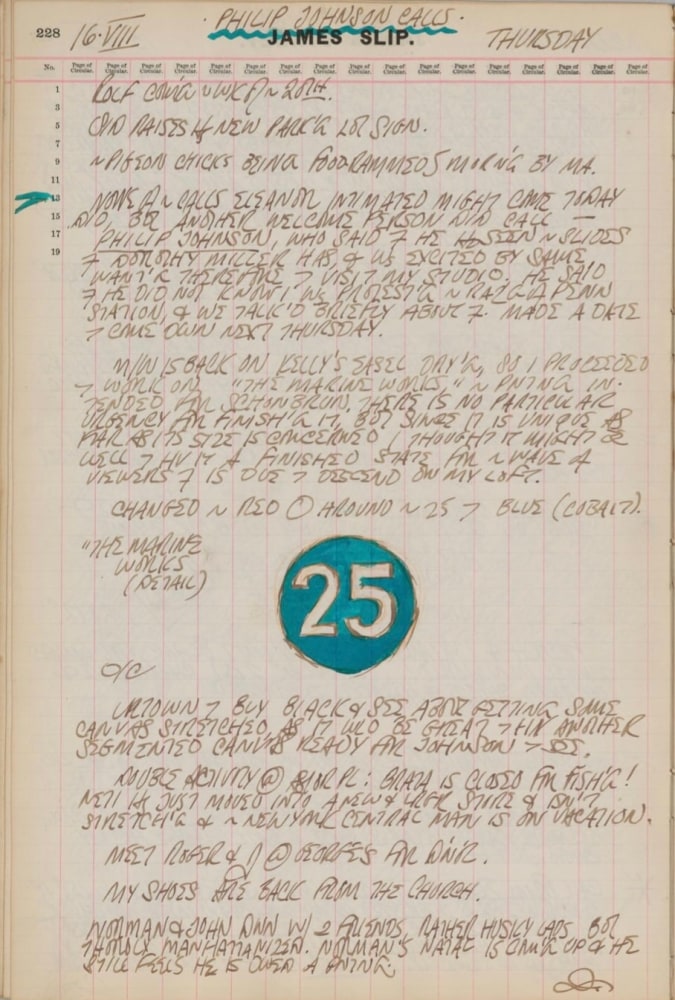 PHILIP JOHNSON CALLS.
228 16·VIII JAMES SLIP. THURSDAY
No. Page of Circular. Page of Circular. Page of Circular. Page of Circular. Page of Circular. Page of Circular. Page of Circular. Page of Circular. Page of Circular. Page of Circular. Page of Circular. Page of Circular. Page of Circular. Page of Circular. Page of Circular. Page of Circular. Page of Circular.
1 ROLF 20TH.
3
5 OLD RAISES NEW PARK'G LOT SIGN.
7
9 ~ PIGEON CHICKS BEING MORN'G BY MA.
11
13 NONE ~ CALLS ELEANOR INTIMATED MIGHT COME TODAY
15 DID, BUT ANOTHER WELCOME PERSON DID CALL —
17 PHILIP JOHNSON, WHO SAID 7 HE SEEN ~ SLIDES
19 7 DOROTHY MILLER HAS, & WS EXCITED BY SAME
WANT'G THEREFORE 7 VISIT MY STUDIO. HE SAID
7 HE DID NOT KNOW I WS PROTEST'G ~ RAZ'G PENN
STATION, & WE TALK'D BRIEFLY ABOUT 7. MADE A DATE
7 COME DOWN NEXT THURSDAY.
M/W IS BACK ON KELLY'S EASEL DRY'G, SO I PROCEEDED
7 WORK ON "THE MARINE WORKS," ~ PNTNG IN-
TENDED FOR SCHONBRUN. THERE IS NO PARTICULAR
URGENCY FOR FINISH'G IT, BUT SINCE IT IS UNIQUE AS
FAR AS ITS SIZE IS CONCERNED I THOUGHT IT MIGHT BE
WELL 7 HV IT A FINISHED STATE FOR ~ WAVE OF
VIEWERS 7 IS DUE 7 DESCEND ON MY LOFT.
CHANGED ~ RED O AROUND ~ 25 7 BLUE (COBALT).
"THE MARINE
WORKS
(DETAIL)
25
O/C
UPTOWN 7 BUY BLACK & SEE ABOUT GETTING SOME
CANVAS STRETCHED, AS IT WLD BE GREAT 7 HV ANOTHER
SEGMENTED CANVAS READY FOR JOHNSON 7 SEE.
DOUBLE ACTIVITY @ PL: IS CLOSED FOR FISH'G!
JUST MOVED INTO A NEW & LRGR STORE & ISN'T
STRETCH'G & ~ NEW YORK CENTRAL MAN IS ON VACATION.
MEET ROBER & @ GEORGE'S FOR DINR.
MY SHOES ARE BACK FROM THE CHURCH.
NORMAN & JOHN DNN W/ 2 FRIENDS, RATHER HUSKY LADS, BUT
THOROLY MANHATTANIZED. NORMAN'S NATAL IS COM'G UP & HE
STILL FEELS HE IS OWED A PNTNG.